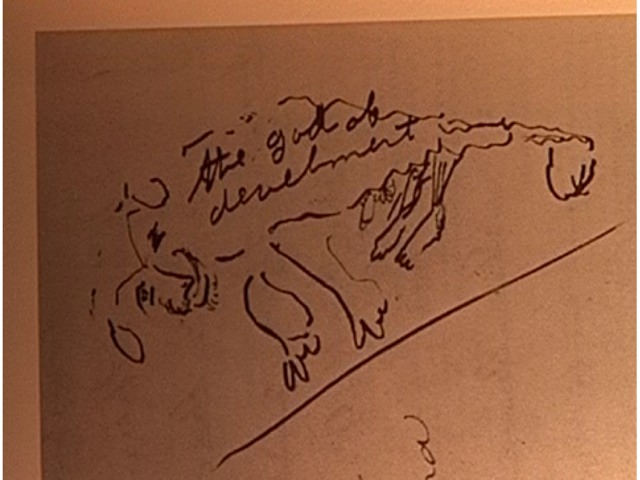 the god of
develment